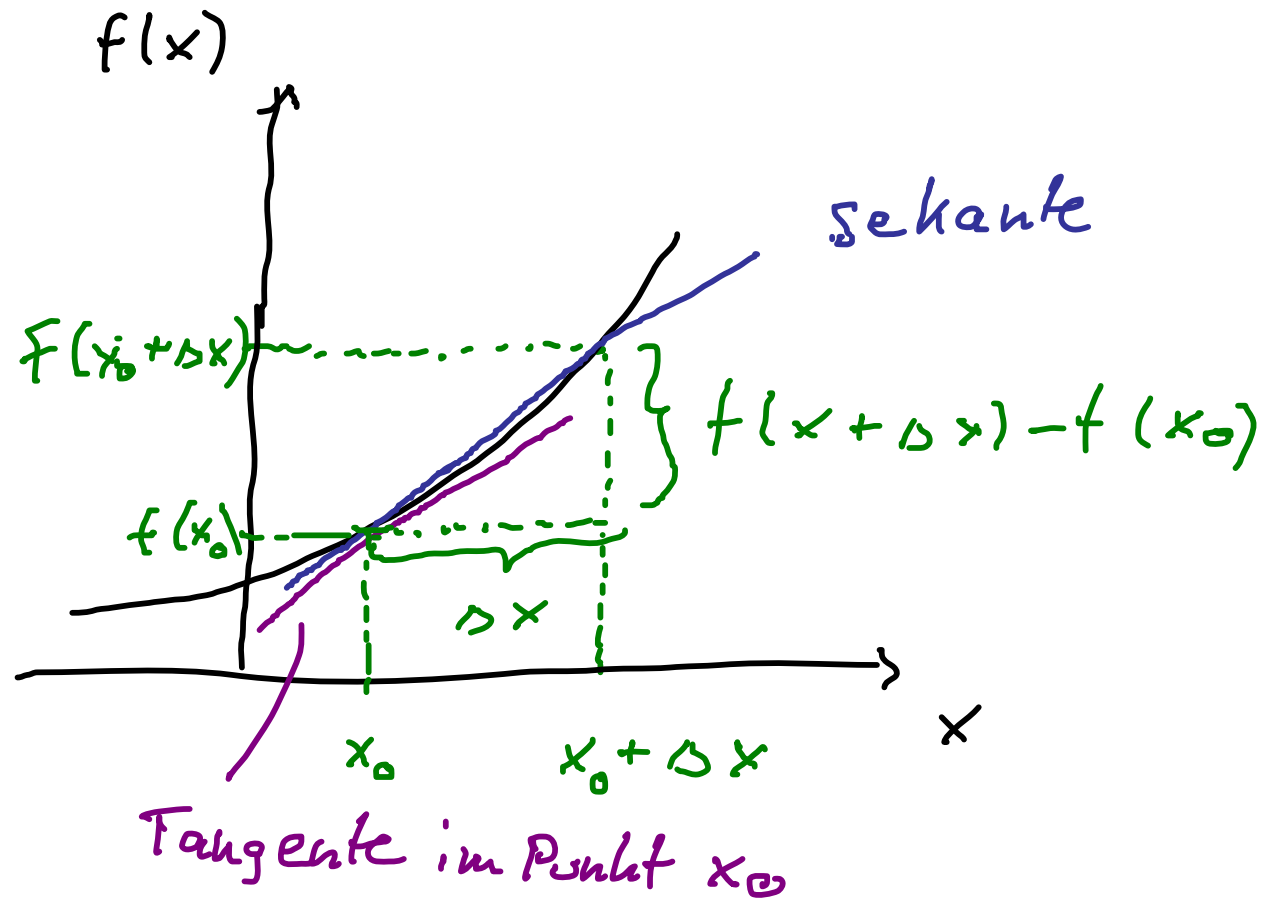 f(x)
Sekante
f(x₀+Δx)
f(x+Δx)-f(x₀)
f(x₀)
Δx
x
x₀
x₀+Δx
Tangente im Punkt x₀